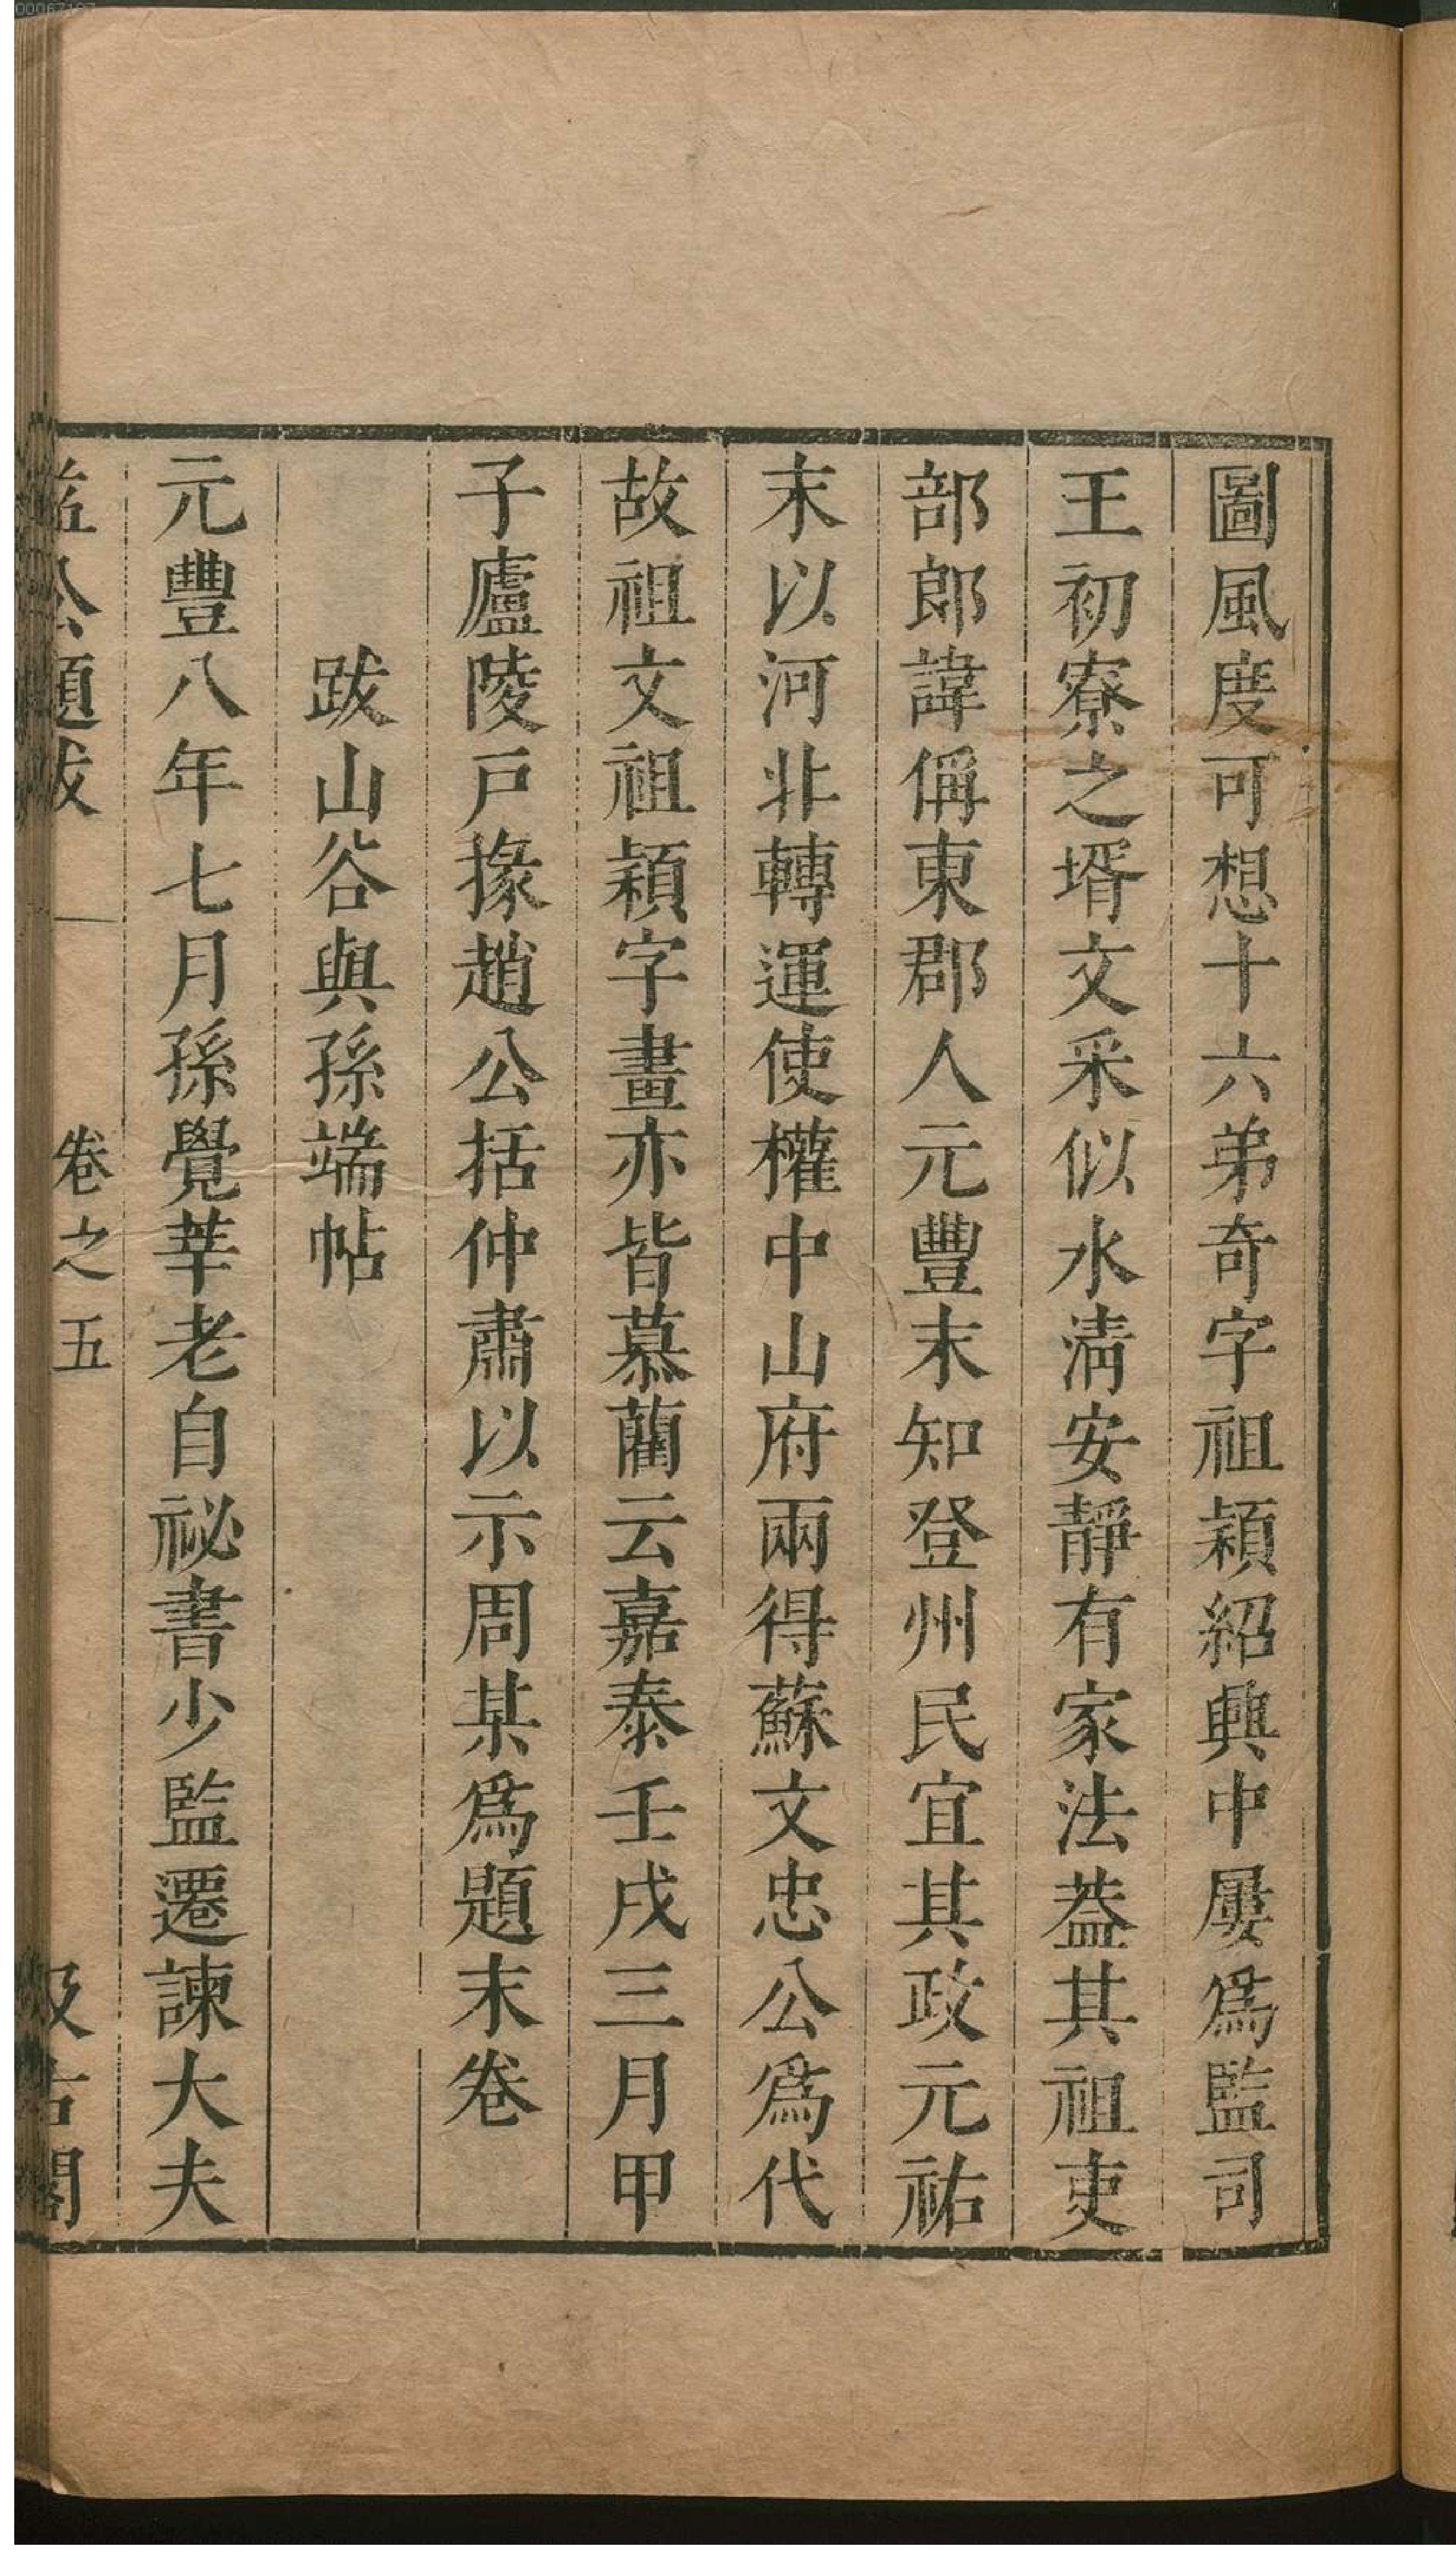 圖風度可想十六弟奇字祖潁紹興中屢爲監司
王初寮之壻文采似水淸安靜有家法葢其祖吏
部郞諱偁東郡人元豐末知登州民宜其政元祐
末以河北轉運使權中山府兩得蘇文忠公爲代
故祖文祖潁字畫亦皆慕藺云嘉泰壬戌三月甲
子廬陵戸掾趙公括仲肅以示周某爲題末卷
跋山谷與孫端帖
元豐八年七月孫覺莘老自祕書少監遷諫大夫
益公題跋
卷之五
汲古閣
00067197